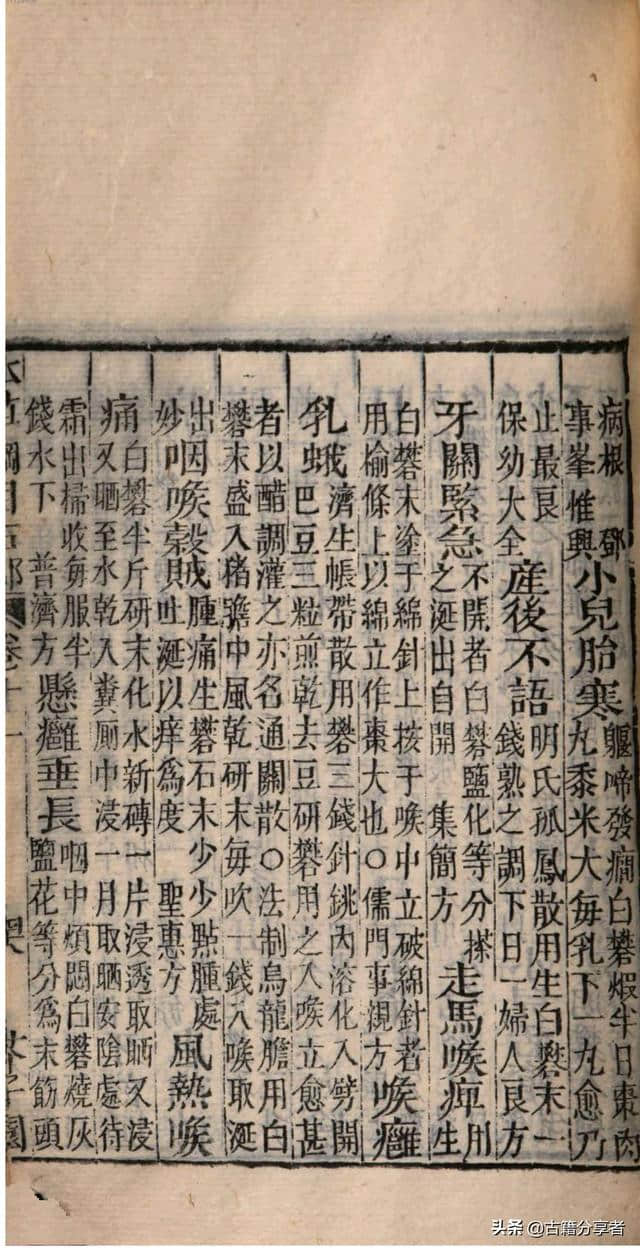 病根 鄧
事峯惟興小兒胎寒軀啼發癇白礬煆半日棗肉
丸黍米大每乳下一丸愈乃
止最良
保幼大全產後不語明氏孤鳳散用生白礬末一
錢熟之調下日一婦人良方
牙關緊急不開者白礬鹽化等分搽
之涎出自開 集簡方走馬喉痺用
生
白礬末塗于綿針上按于喉中立破綿針者
用榆條上以綿立作棗大也○儒門事親方喉癰
乳蛾濟生帳帶散用礬三錢針銚內溶化入劈開
巴豆三粒煎乾去豆研礬用之入喉立愈甚
者以醋調灌之亦名通關散○法制烏龍膽用白
礬末盛入猪膽中風乾研末每吹一錢入喉取涎
出
妙咽喉穀賊腫痛生礬石末少少點腫處
吐涎以痒爲度 聖惠方風熱喉
痛白礬半斤研末化水新磚一片浸透取晒又浸
又晒至水乾入糞厠中浸一月取晒安陰處待
霜出掃收每服半
錢水下 普濟方懸癰垂長咽中煩悶白礬燒灰
鹽花等分爲末筯頭
本草綱目石部 卷十一 芥子園
头条 @古籍分享者